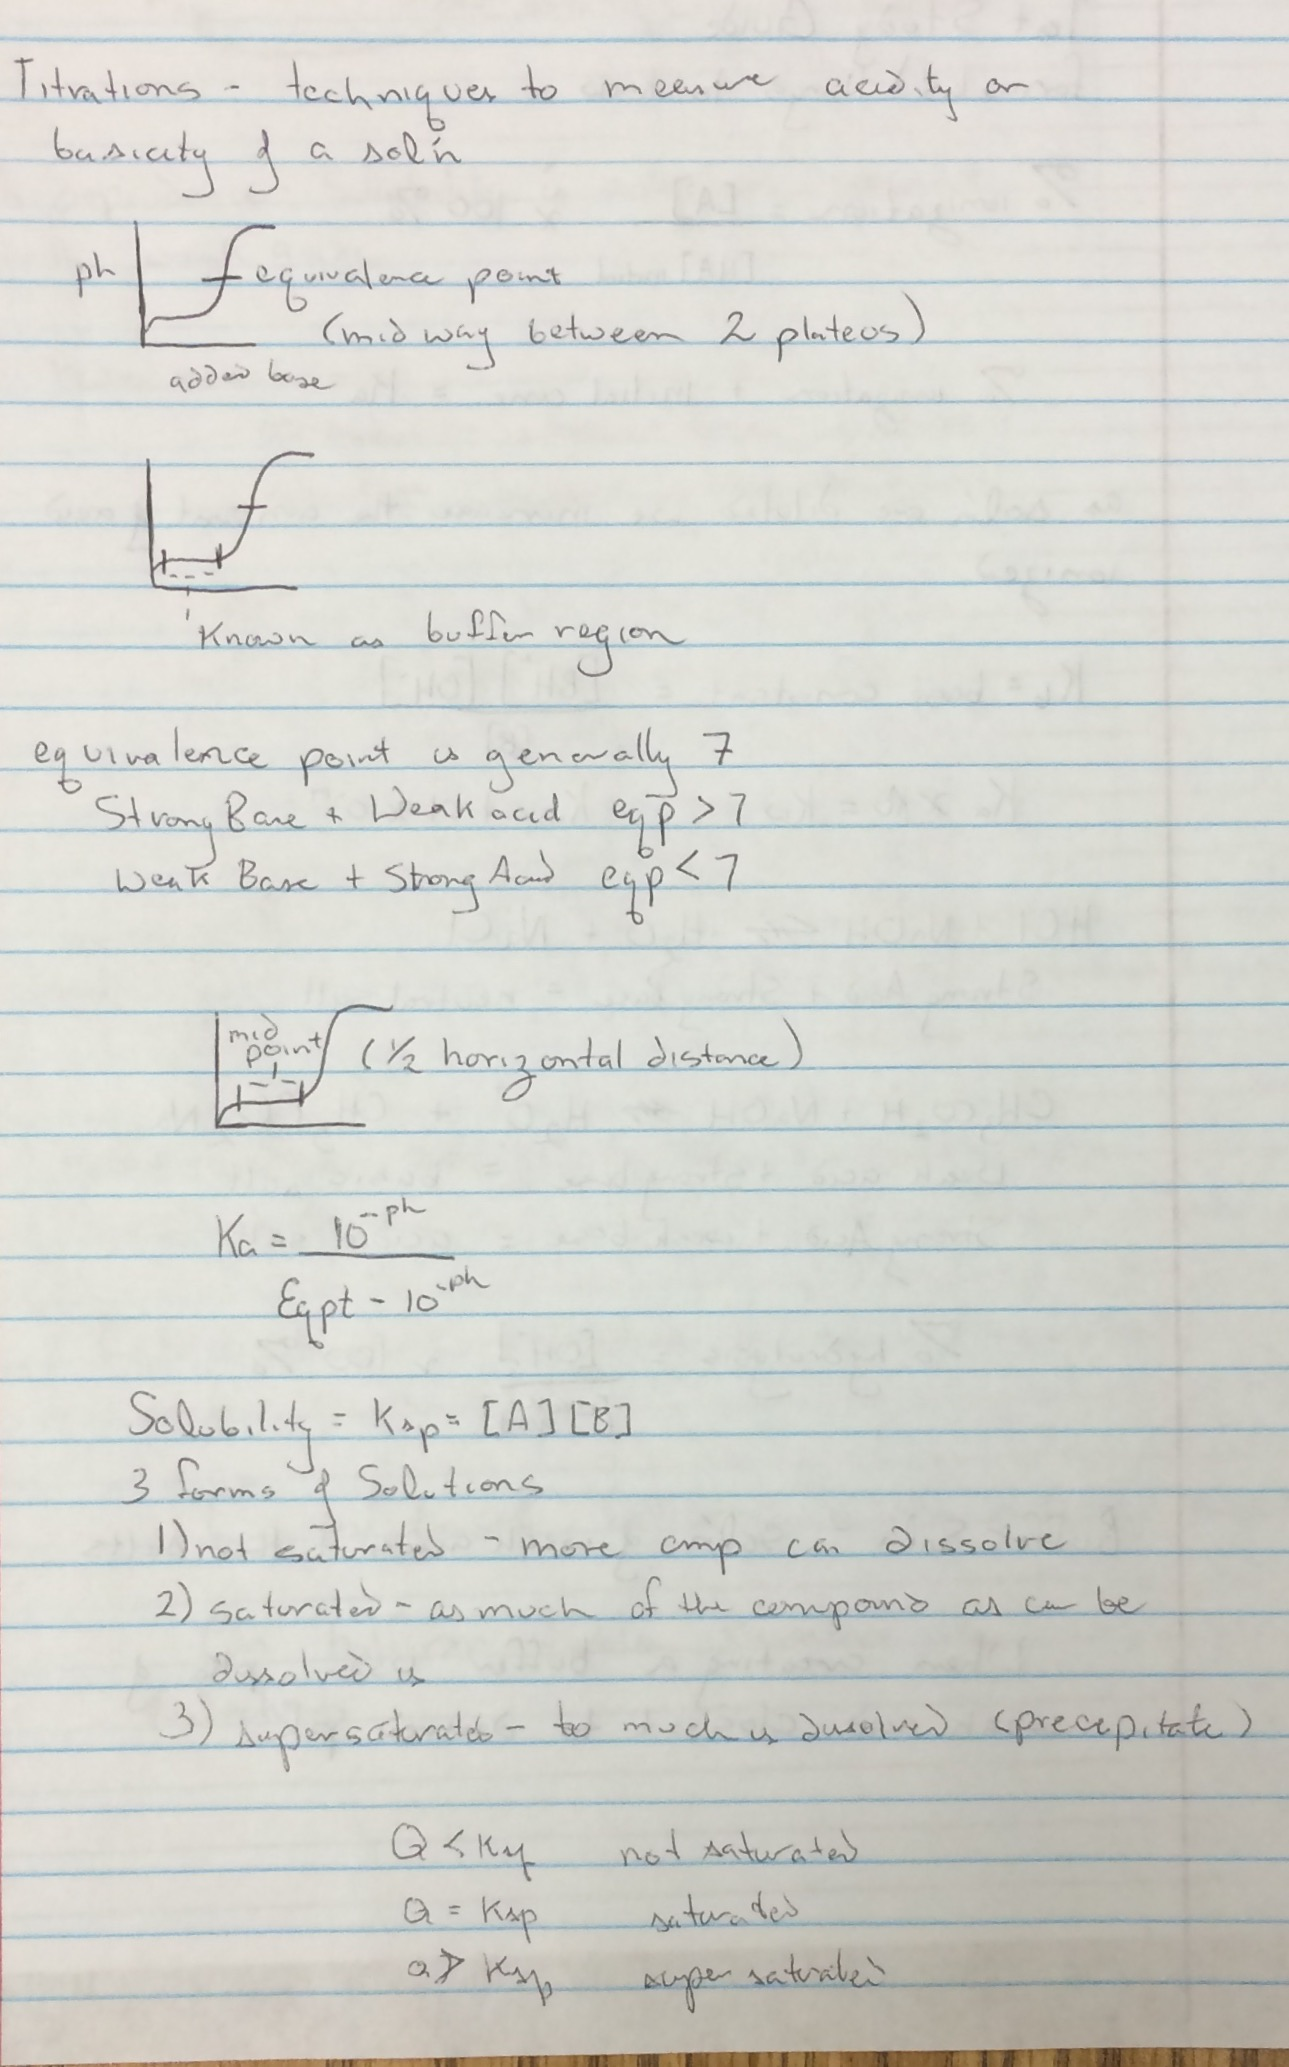 Titrations - techniques to measure acidity or
basicity of a sol'n
ph
equivalence point
(mid way between 2 plateos)
added base
Known as buffer region
equivalence point is generally 7
Strong Base + Weak acid eqp > 7
Weak Base + Strong Acid eqp < 7
mid
point
(1/2 horizontal distance)
Ka = 10^-ph
Eqpt - 10^-ph
Solubility = Ksp = [A][B]
3 forms of Solutions
1) not saturated - more cmp can dissolve
2) saturated - as much of the compound as can be
dissolved is
3) supersaturated - to much is dissolved (precepitate)
Q < Ksp not saturated
Q = Ksp saturated
Q > Ksp super saturated